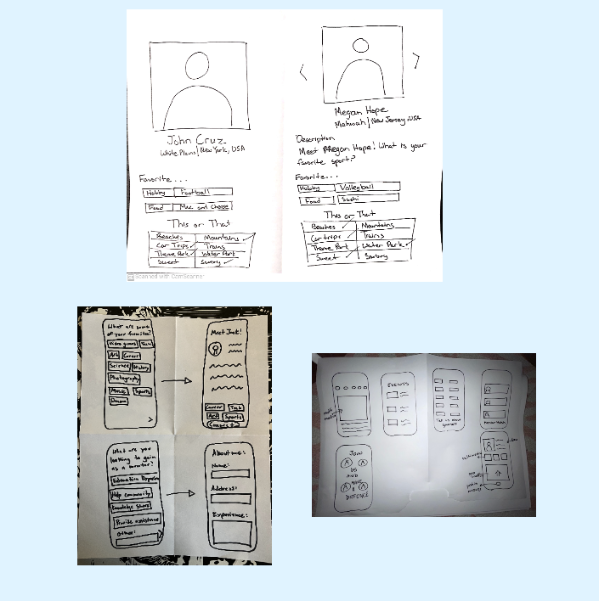 John Cruz
White Plains/New York, USA
Favorite...
Hobby Football
Food Mac and Cheese
This or That
Beaches Mountains
Car Trips Trains
Theme Park Water Park
Sweet Savory
Scanned with CamScanner
Megan Hope
Mahwah/New Jersey USA
Description
Meet Megan Hope! What is your
favorite sport?
Favorite...
Hobby Volleyball
Food Sushi
This or That
Beaches Mountains
Car trips Trains
Theme Park Water Park
Sweet Savory
What are some
of your favorites?
Video games Tech
Art Career
Science History
Photography
Movies Sports
Meet Jack!
Career Tech
Art Sports
What are you
looking to gain
as a mentor?
Help community
Knowledge Share
Provide assistance
Other:
About me:
Name:
Address:
Experience:
EVENTS
JOIN
US
AND
MAKE
A
DIFFERENCE